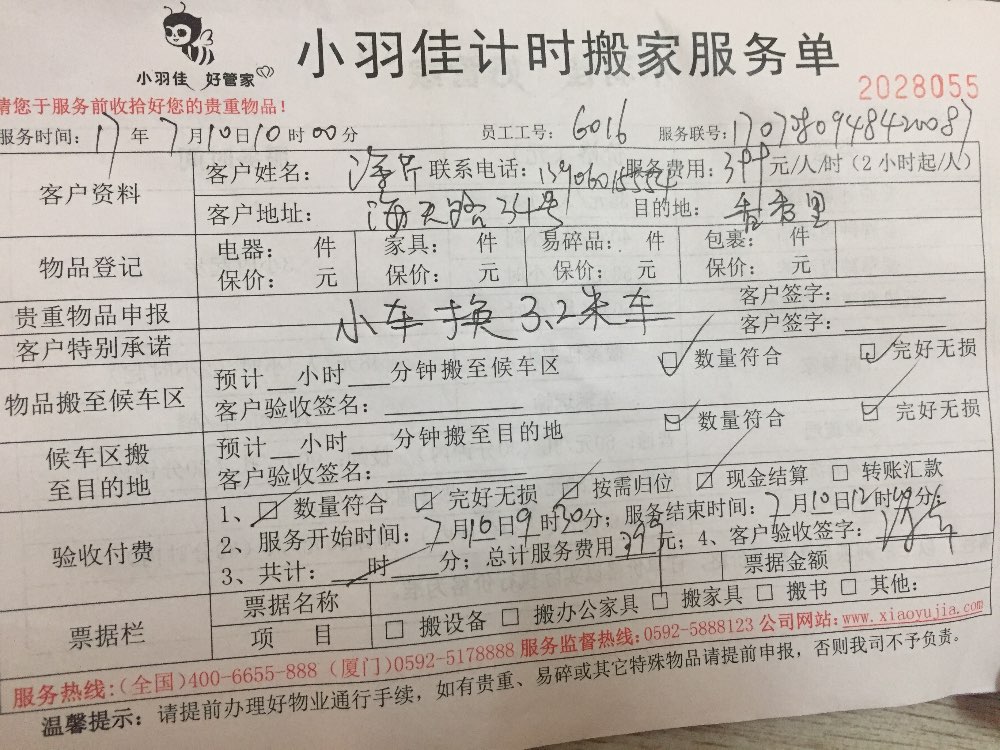 小羽佳 好管家
小羽佳计时搬家服务单
2028055
请您于服务前收拾好您的贵重物品!
服务时间: 17 年 7 月 10 日 10 时 00 分 员工工号: 6016 服务联号: 1707080948420087
客户资料
客户姓名: 联系电话: 服务费用: 元/人/时(2小时起/人)
客户地址: 海天路34号 目的地: 香香里
物品登记
电器: 件 家具: 件 易碎品: 件 包裹: 件
保价: 元 保价: 元 保价: 元 保价: 元
贵重物品申报 客户签字:
小车换3.2米车
客户特别承诺 客户签字:
物品搬至候车区
预计 小时 分钟搬至候车区 数量符合 完好无损
客户验收签名:
候车区搬至目的地
预计 小时 分钟搬至目的地 数量符合 完好无损
客户验收签名:
验收付费
1、 数量符合 完好无损 按需归位 现金结算 转账汇款
2、服务开始时间: 7 月 10 日 9 时 30 分; 服务结束时间: 7 月 10 日 12 时 分
3、共计: 时 分; 总计服务费用 元; 4、客户验收签字:
票据栏
票据名称 票据金额
项 目 搬设备 搬办公家具 搬家具 搬书 其他:
服务热线:(全国)400-6655-888 (厦门)0592-5178888 服务监督热线:0592-5888123 公司网站:www.xiaoyujia.com
温馨提示: 请提前办理好物业通行手续，如有贵重、易碎或其它特殊物品请提前申报，否则我司不予负责。